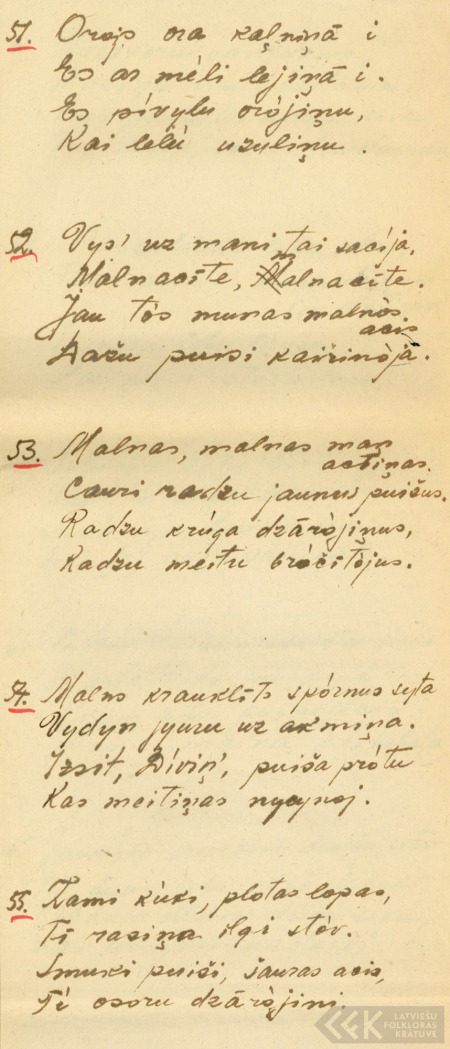 51. Orajs ora kaļniņā i
Es ar mēli lejiņā i.
Es pívylu orójiņu,
Kai lelú uzuliņu.
52. Vys' uz mani tai sacíja,
Malnacíte, malnacíte.
Jau tós munas malnós
acis
Dažu puisi kairinója.
53. Malnas, malnas man
actiņas.
Cauri radzu jaunus puišus.
Radzu krúga dzārójiņus,
Radzu meitu bróčítójus.
54. Malns krauklíts spórnus syta
Vydyn jyuru uz akmiņa.
Izsit, Díviņ', puiša prótu
Kas meitiņas nycynoj.
55. Zami kúki, plotas lopas,
Tí rasiņa ilgi stóv.
Smuki puiši, šauras acis,
Tí osoru dzārójini.
LATVIEŠU
FOLKLORAS
KRĀTUVE